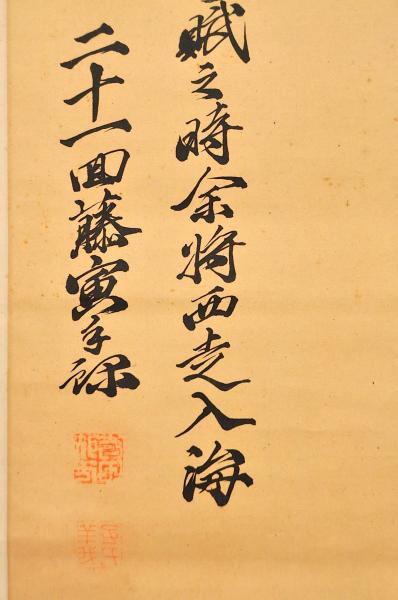 賦之時余将西走入海
二十一回藤寅手録